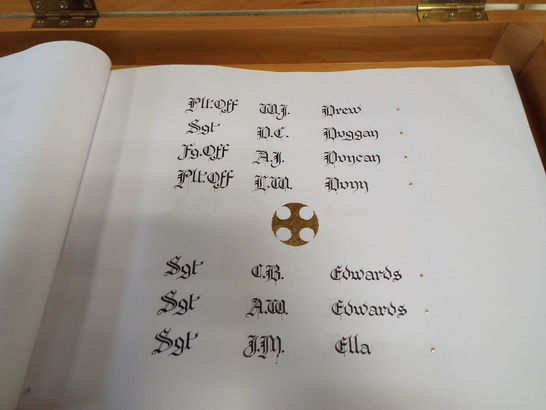 Plt.Off W.J. Drew
Sgt D.C. Duggan
Fg.Off A.J. Duncan
Plt.Off L.W. Dunn
Sgt C.B. Edwards
Sgt A.W. Edwards
Sgt J.M. Ella